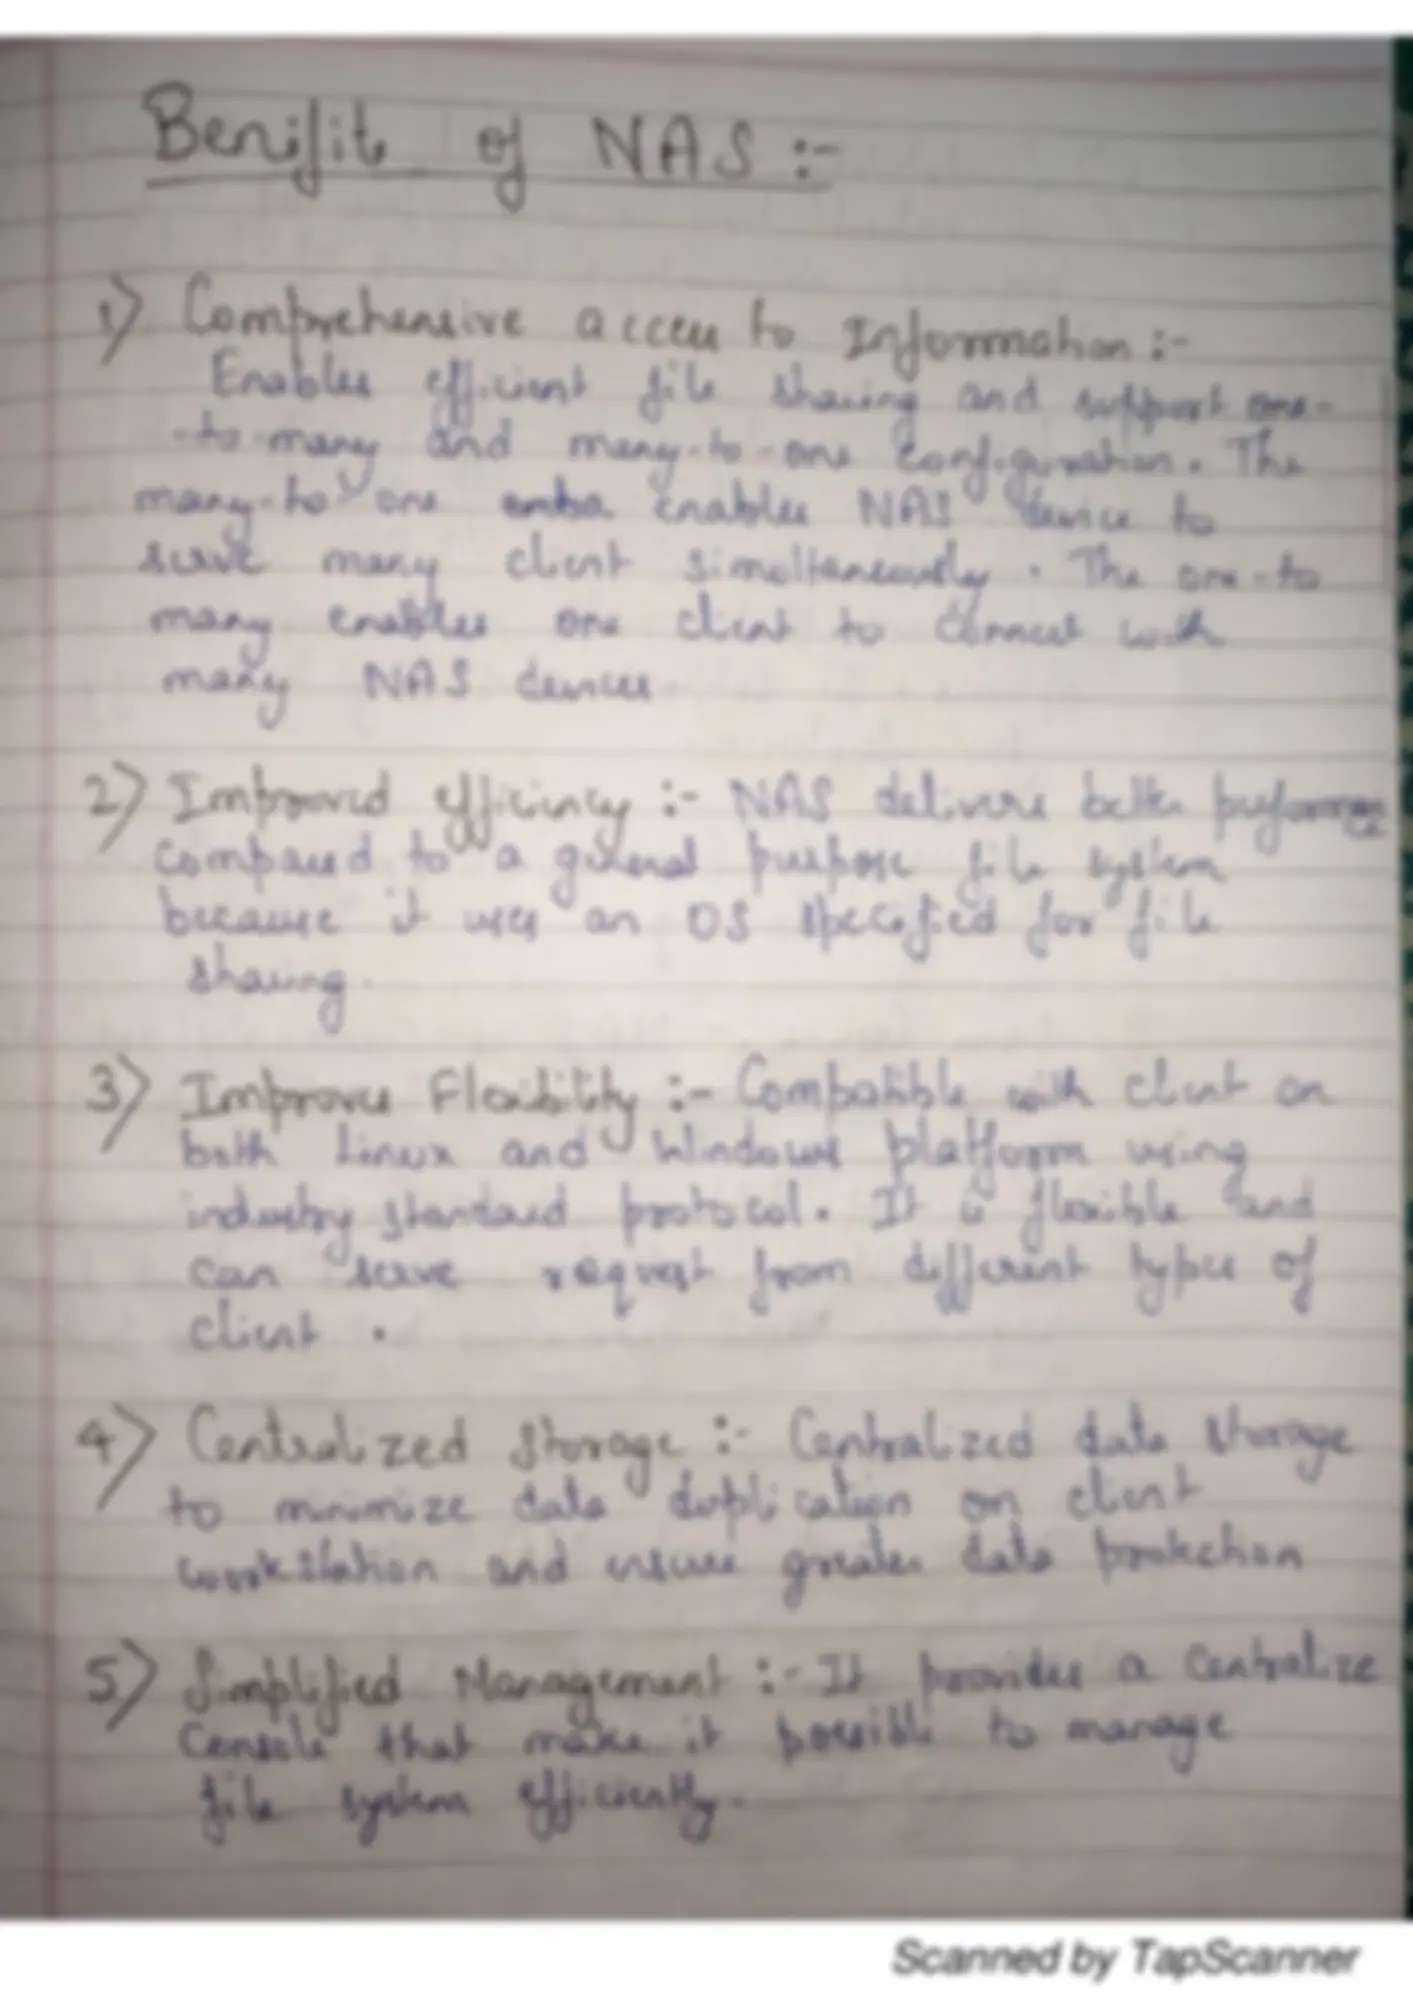 Benifits of NAS :-
1) Comprehensive access to Information :-
Enables efficient file sharing and support one-
-to-many and many-to-one configuration. The
many-to one enables NAS device to
serve many client simoltaneously. The one-to
many enables one client to connect with
many NAS devices
2) Improved efficincy :- NAS delivers better performance
compared to a general purpose file system
because it uses an OS specified for file
sharing.
3) Improves Flexibility :- Compatible with client on
both Linux and Windows platform using
industry standard protocol. It is flexible and
can serve request from different types of
client .
4) Centralized Storage :- Centralized data storage
to minimize data duplication on client
workstation and ensure greater data protection
5) Simplified Management :- It provides a Centralize
Console that make it possible to manage
file system efficiently.
Scanned by TapScanner